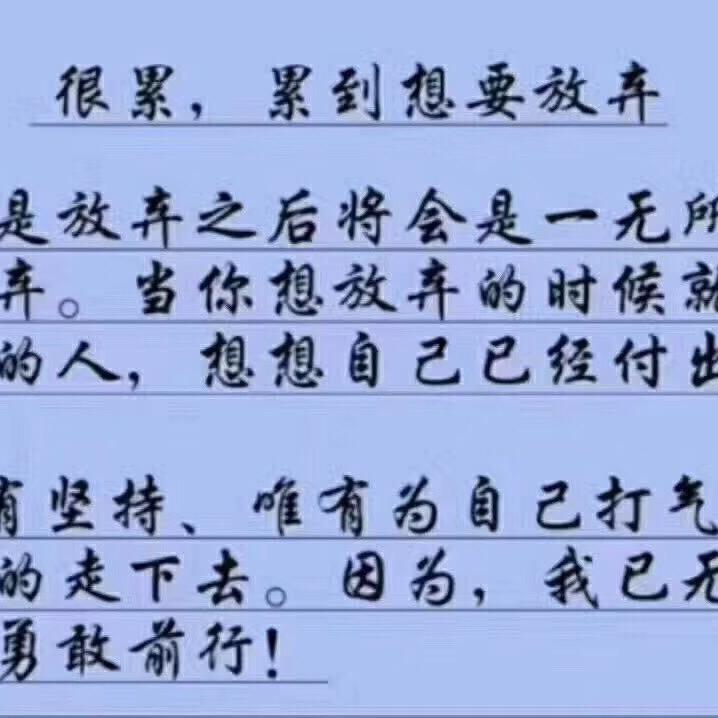 很累，累到想要放弃
是放弃之后将会是一无所
弃。当你想放弃的时候就
的人，想想自己已经付出
有坚持、唯有为自己打气
的走下去。因为，我已无
勇敢前行！